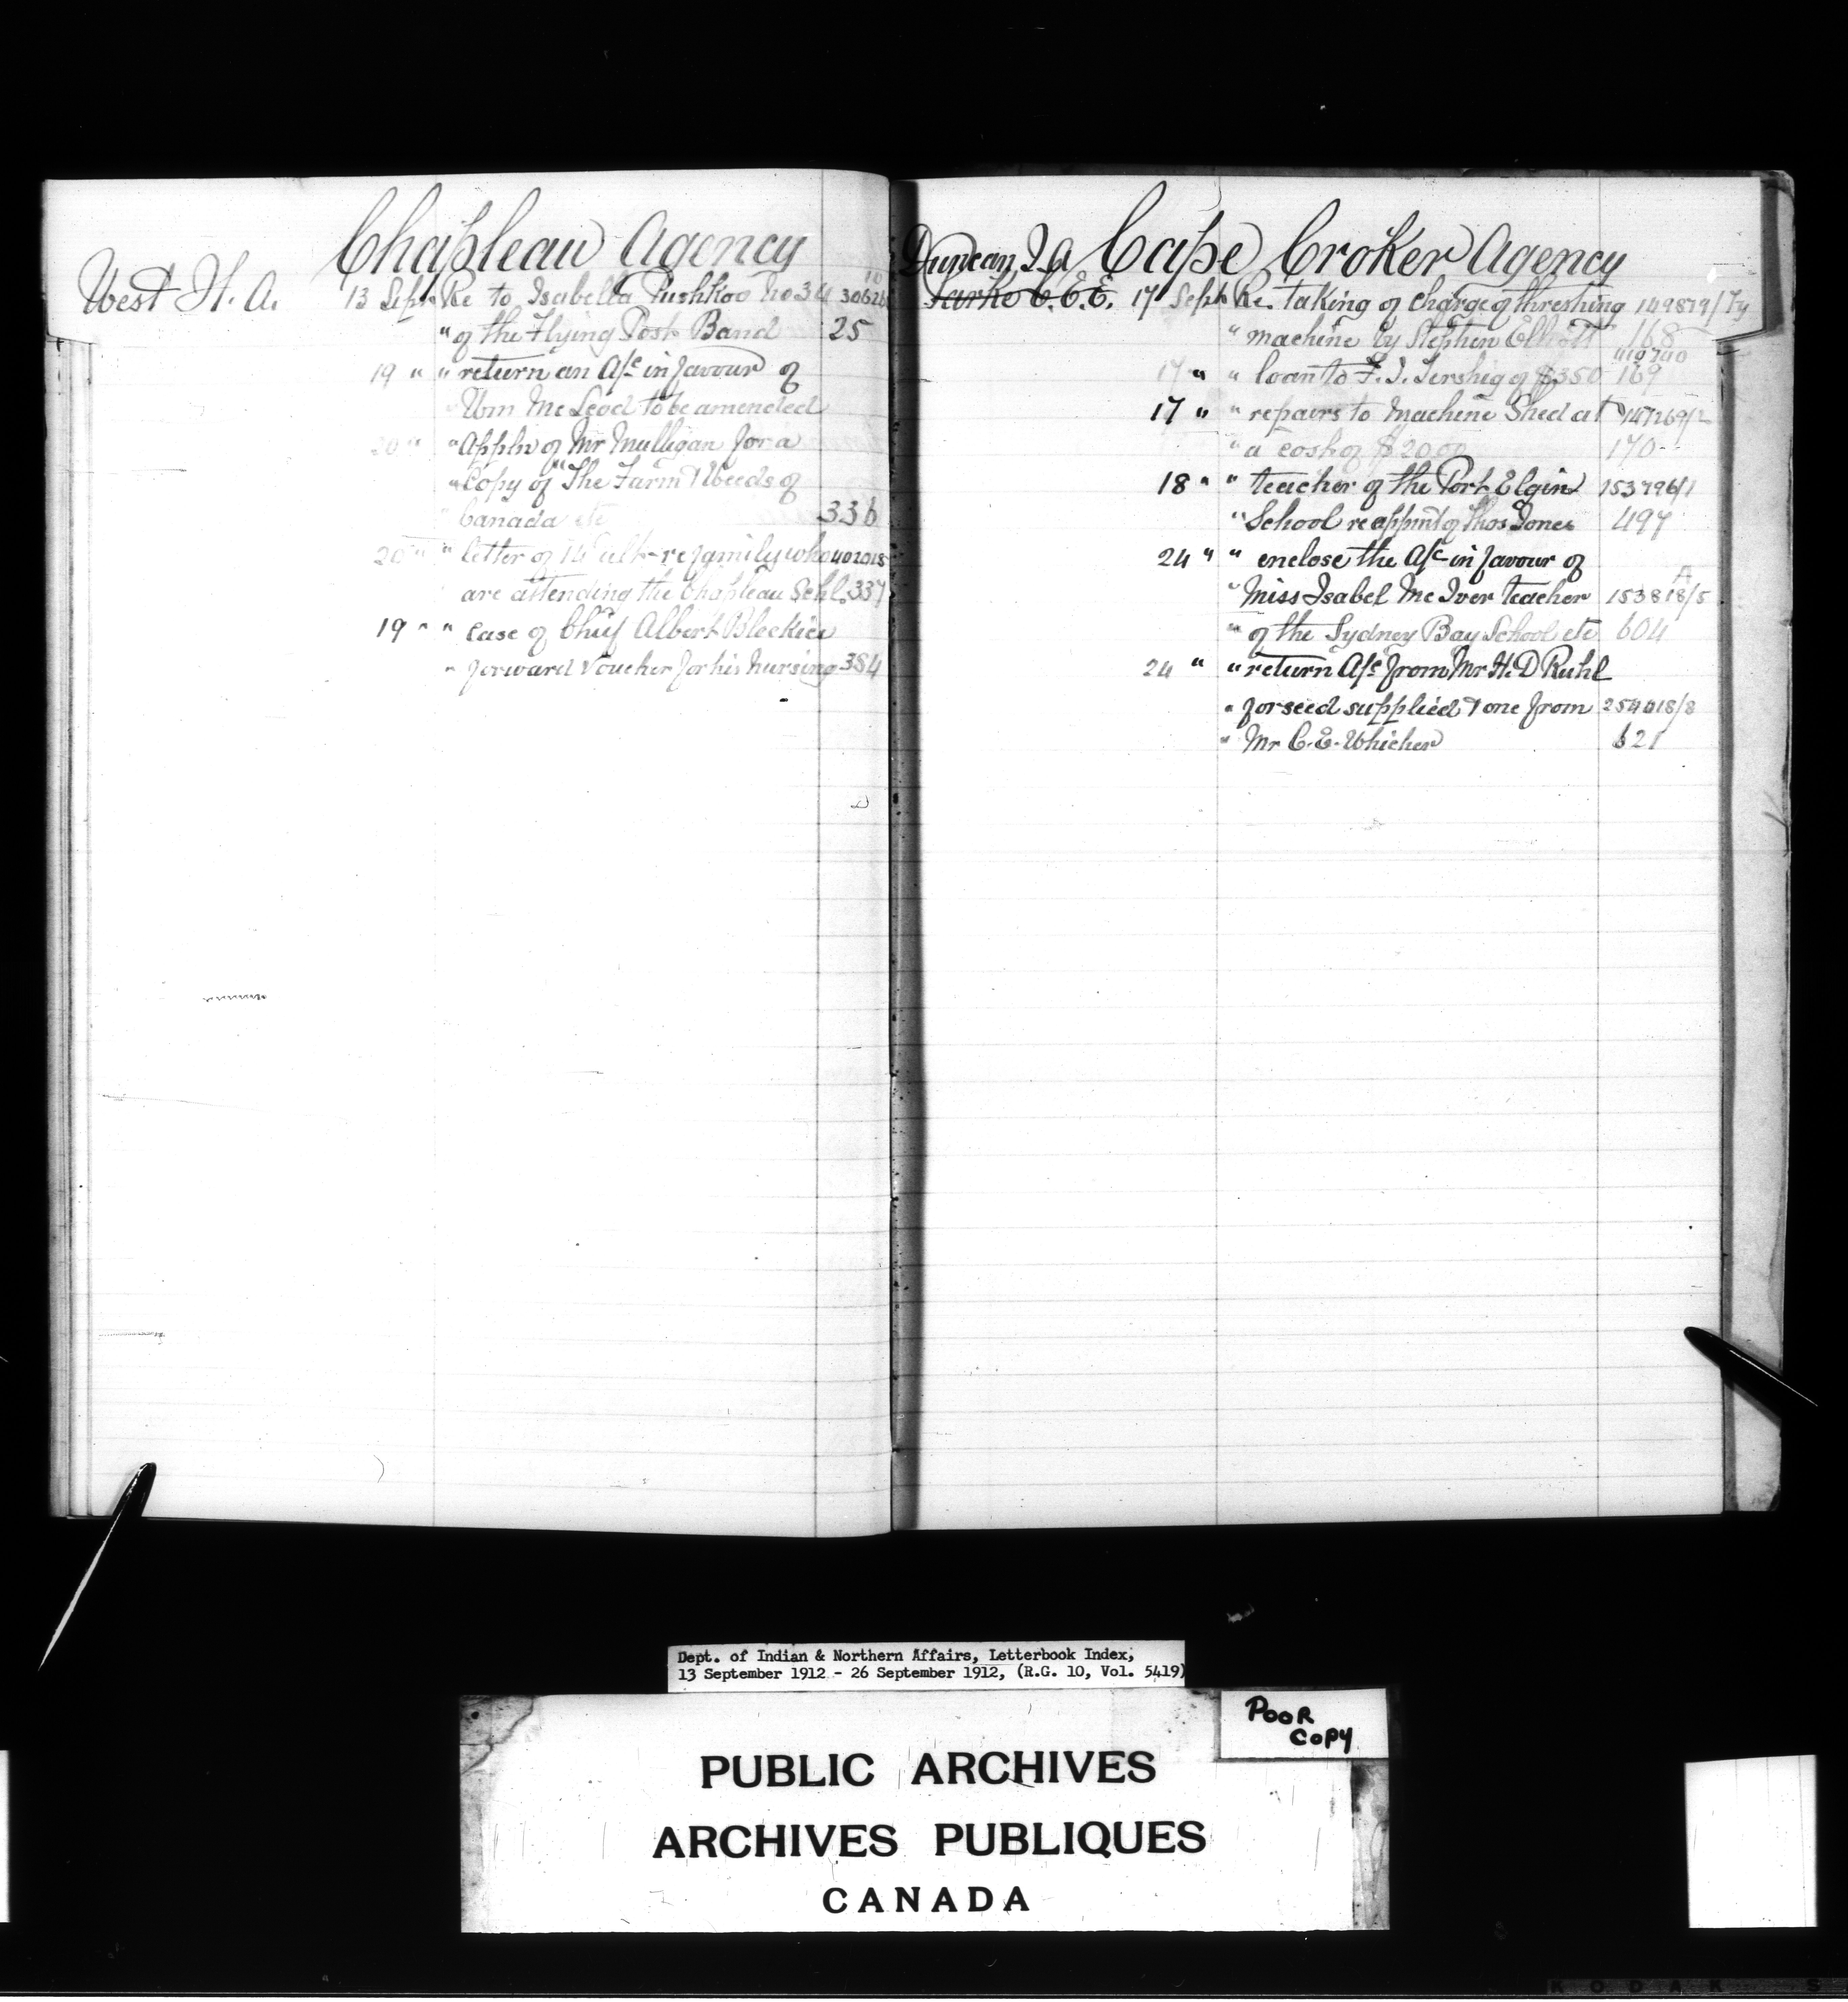 Chapleau Agency
West H. A. 13 Sept Re to Isabella Pushkoo No 34 30626
" of the Flying Post Band 25
19 " " return an A/c in favour of
Wm McLeod to be amended
20 " " Appln of Mr Mulligan for a
" Copy of "The Farm Weeds of
" Canada etc 336
20 " " letter of 14 ult re family who 402018
are attending the Chapleau Schl. 337
19 " " Case of Chief Albert
" forward Voucher for his Nursing 384
Duncan J A Cape Croker Agency
C. E. E. 17 Sept Re. taking of charge of threshing 149879/7y
" machine by Stephen Elliott 168
17 " " loan to F. J. of $350 419740 169
17 " " repairs to Machine Shed at 147269/2
" a cost of $20.00 170
18 " " teacher of the Port Elgin 153796/1
" School reappmt of Thos Jones 497
24 " " enclose the A/c in favour of
" Miss Isabel McIver teacher 153818/5 A
" of the Sydney Bay School etc 604
24 " " return A/c from Mr H. D Ruhl
" for seed supplied & one from 254018/8
" Mr C. E. Whicher 621
Dept. of Indian & Northern Affairs, Letterbook Index,
13 September 1912 - 26 September 1912, (R.G. 10, Vol. 5419)
POOR
COPY
PUBLIC ARCHIVES
ARCHIVES PUBLIQUES
CANADA
KODAK S